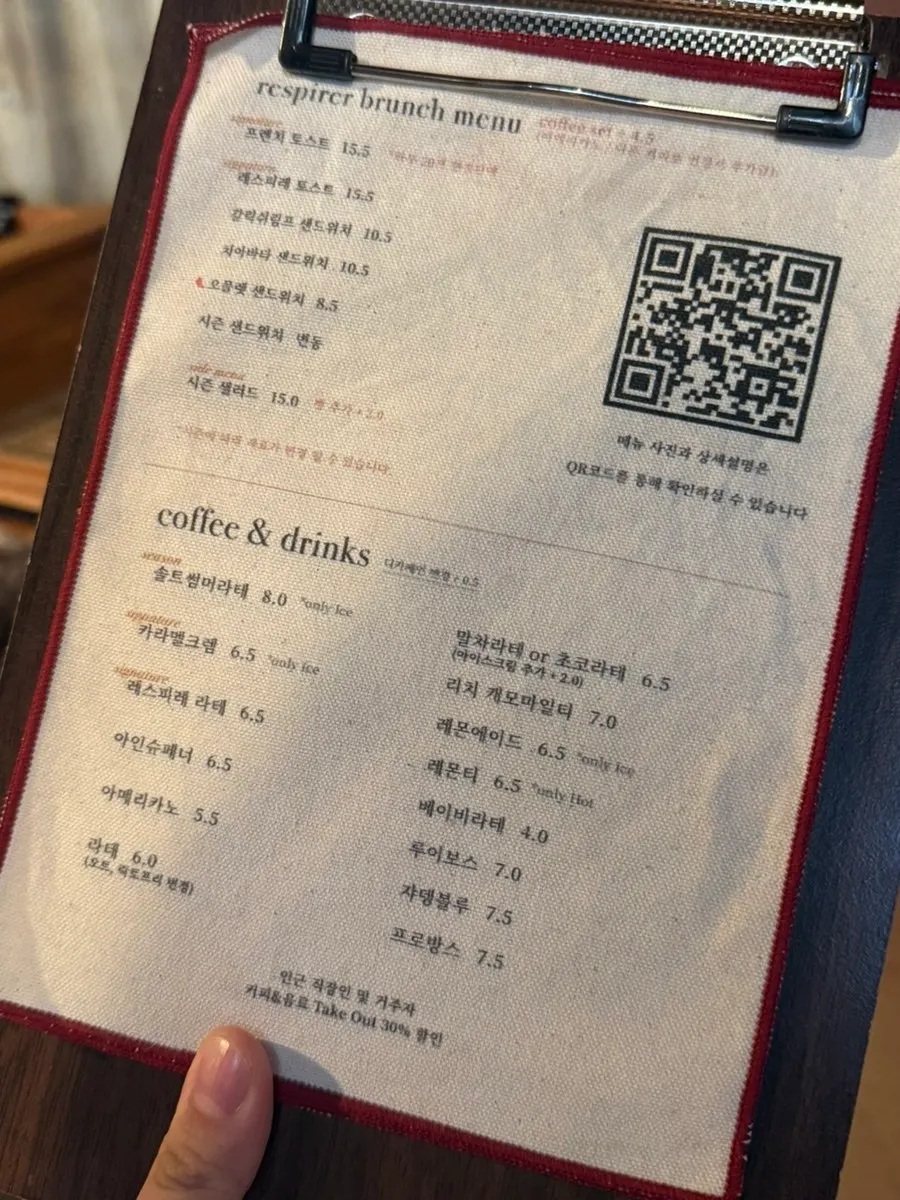 respirer brunch menu
coffee set + 4.5
(아메리카노 / 다른 커피로 변경시 추가금)
signature
프렌치 토스트 15.5 *하루 20개 한정판매
signature
레스피레 토스트 15.5
갈릭쉬림프 샌드위치 10.5
치아바타 샌드위치 10.5
오믈렛 샌드위치 8.5
시즌 샌드위치 변동
side menu
시즌 샐러드 15.0 빵 추가 + 2.0
*시즌에 따라 재료가 변경 될 수 있습니다
메뉴 사진과 상세설명은
QR코드를 통해 확인하실 수 있습니다
coffee & drinks 디카페인 변경 + 0.5
season
솔트썸머라떼 8.0 *only Ice
signature
카라멜크렘 6.5 *only ice
signature
레스피레 라떼 6.5
아인슈페너 6.5
아메리카노 5.5
라떼 6.0
(오트, 락토프리 변경)
말차라떼 or 초코라떼 6.5
(아이스크림 추가 + 2.0)
리치 캐모마일티 7.0
레몬에이드 6.5 *only Ice
레몬티 6.5 *only Hot
베이비라떼 4.0
루이보스 7.0
쟈뎅블루 7.5
프로방스 7.5
인근 직장인 및 거주자
커피&음료 Take Out 30% 할인